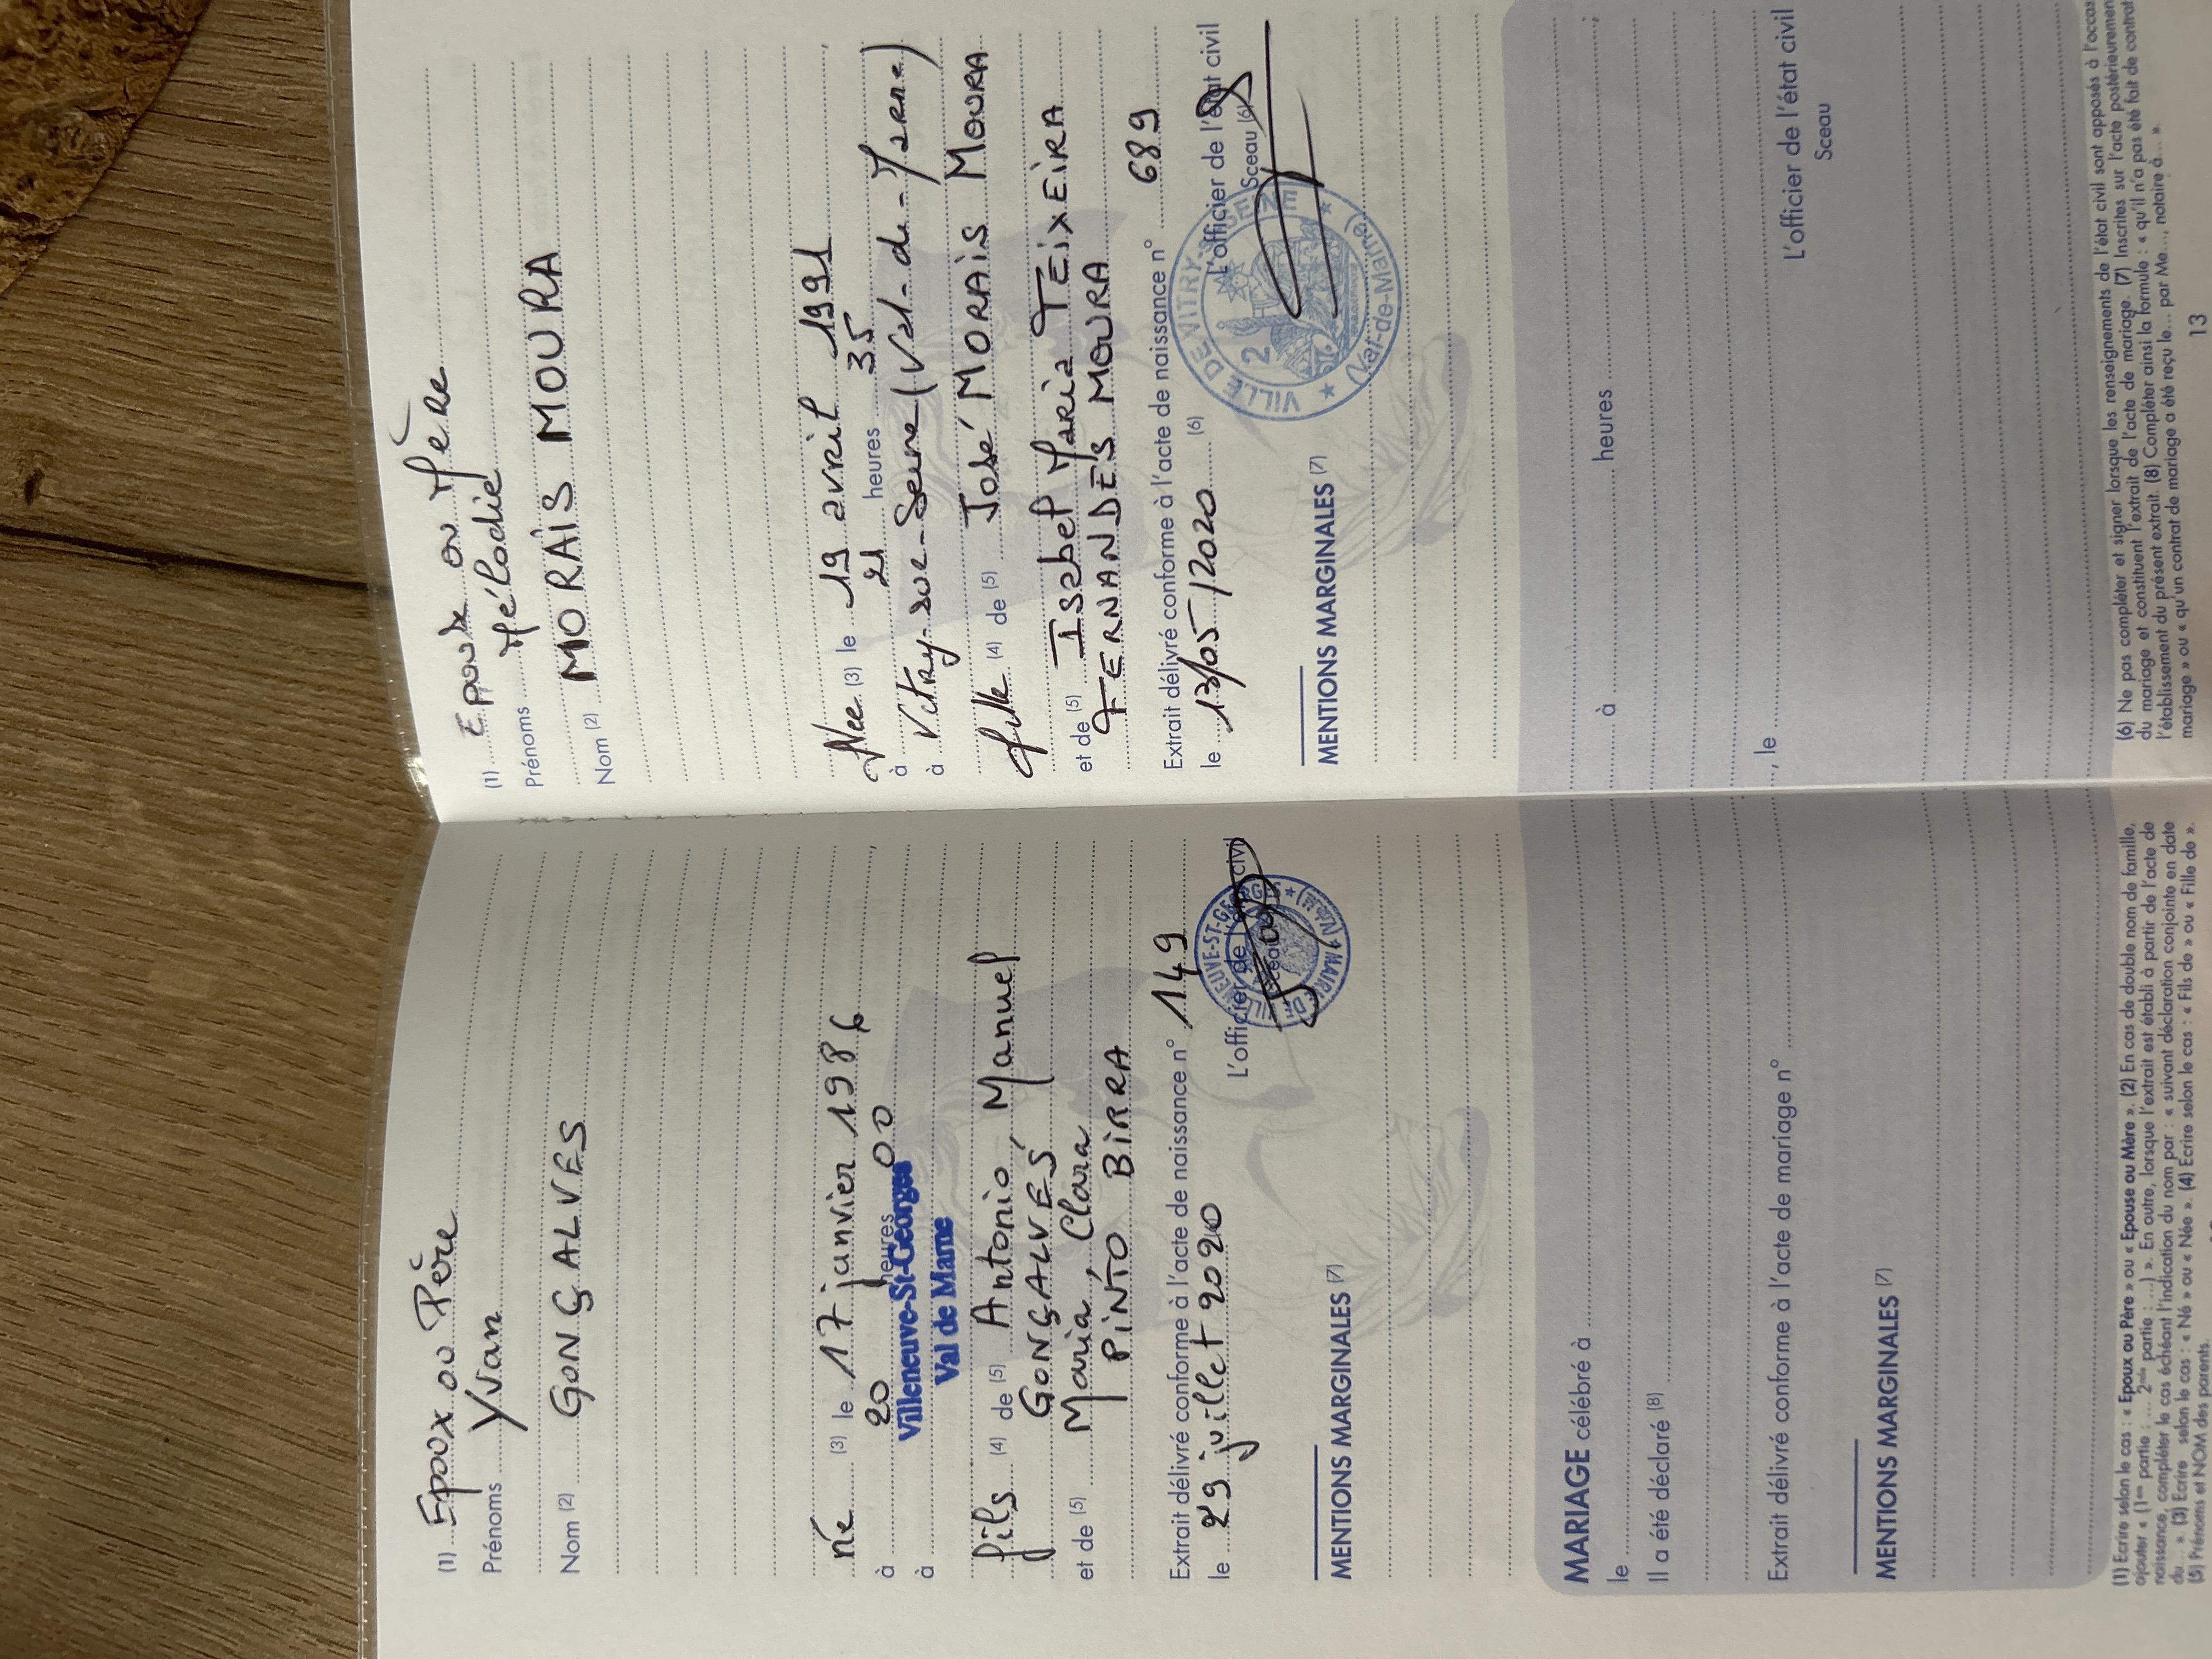 (1) Epoux ou Père
Prénoms Yvan
Nom (2) GONÇALVES
né (3) le 17 janvier 1986
à 20 heures 00
à Villeneuve-St-Georges
Val de Marne
fils (4) de (5) Antonio, Manuel
GONÇALVES
et de (5) Maria, Clara
PINTO BIRRA
Extrait délivré conforme à l'acte de naissance n° 149
le 29 juillet 2020
L'officier de l'état civil
Sceau
MAIRIE DE VILLENEUVE-ST-GEORGES
MENTIONS MARGINALES (7)
MARIAGE célébré à
le
Il a été déclaré (8)
Extrait délivré conforme à l'acte de mariage n°
MENTIONS MARGINALES (7)
(1) Ecrire selon le cas : « Epoux ou Père » ou « Epouse ou Mère ». (2) En cas de double nom de famille,
ajouter « (1ère partie : ... 2ème partie : ...) ». En outre, lorsque l'extrait est établi à partir de l'acte de
naissance, compléter le cas échéant l'indication du nom par : « suivant déclaration conjointe en date
du ... ». (3) Ecrire selon le cas : « Né » ou « Née ». (4) Ecrire selon le cas : « Fils de » ou « Fille de ».
(5) Prénoms et NOM des parents.
(1) Epouse ou Mère
Prénoms Mélodie
Nom (2) MORAIS MOURA
Née (3) le 19 avril 1991
à 21 heures 35
à Vitry-sur-Seine (Val-de-Marne)
fille (4) de (5) José MORAIS MOURA
et de (5) Isabel Maria TEIXEIRA
FERNANDES MOURA
Extrait délivré conforme à l'acte de naissance n° 689
le 13/05/2020 (6)
L'officier de l'état civil
Sceau (6)
VILLE DE VITRY-SUR-SEINE
2
(Val-de-Marne)
MENTIONS MARGINALES (7)
à heures
, le
L'officier de l'état civil
Sceau
(6) Ne pas compléter et signer lorsque les renseignements de l'état civil sont apposés à l'occas
du mariage et constituent l'extrait de l'acte de mariage. (7) Inscrites sur l'acte postérieuremen
l'établissement du présent extrait. (8) Compléter ainsi la formule : « qu'il n'a pas été fait de contrat
mariage » ou « qu'un contrat de mariage a été reçu le... par Me..., notaire à... ».
13